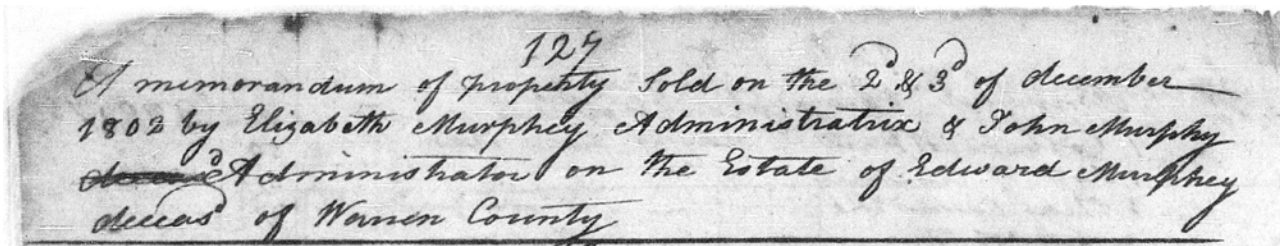 127
A memorandum of property Sold on the 2d & 3d of december
1802 by Elizabeth Murphey Administratrix & John Murphy
Administrator on the Estate of Edward Murphey
deceasd of Warren County